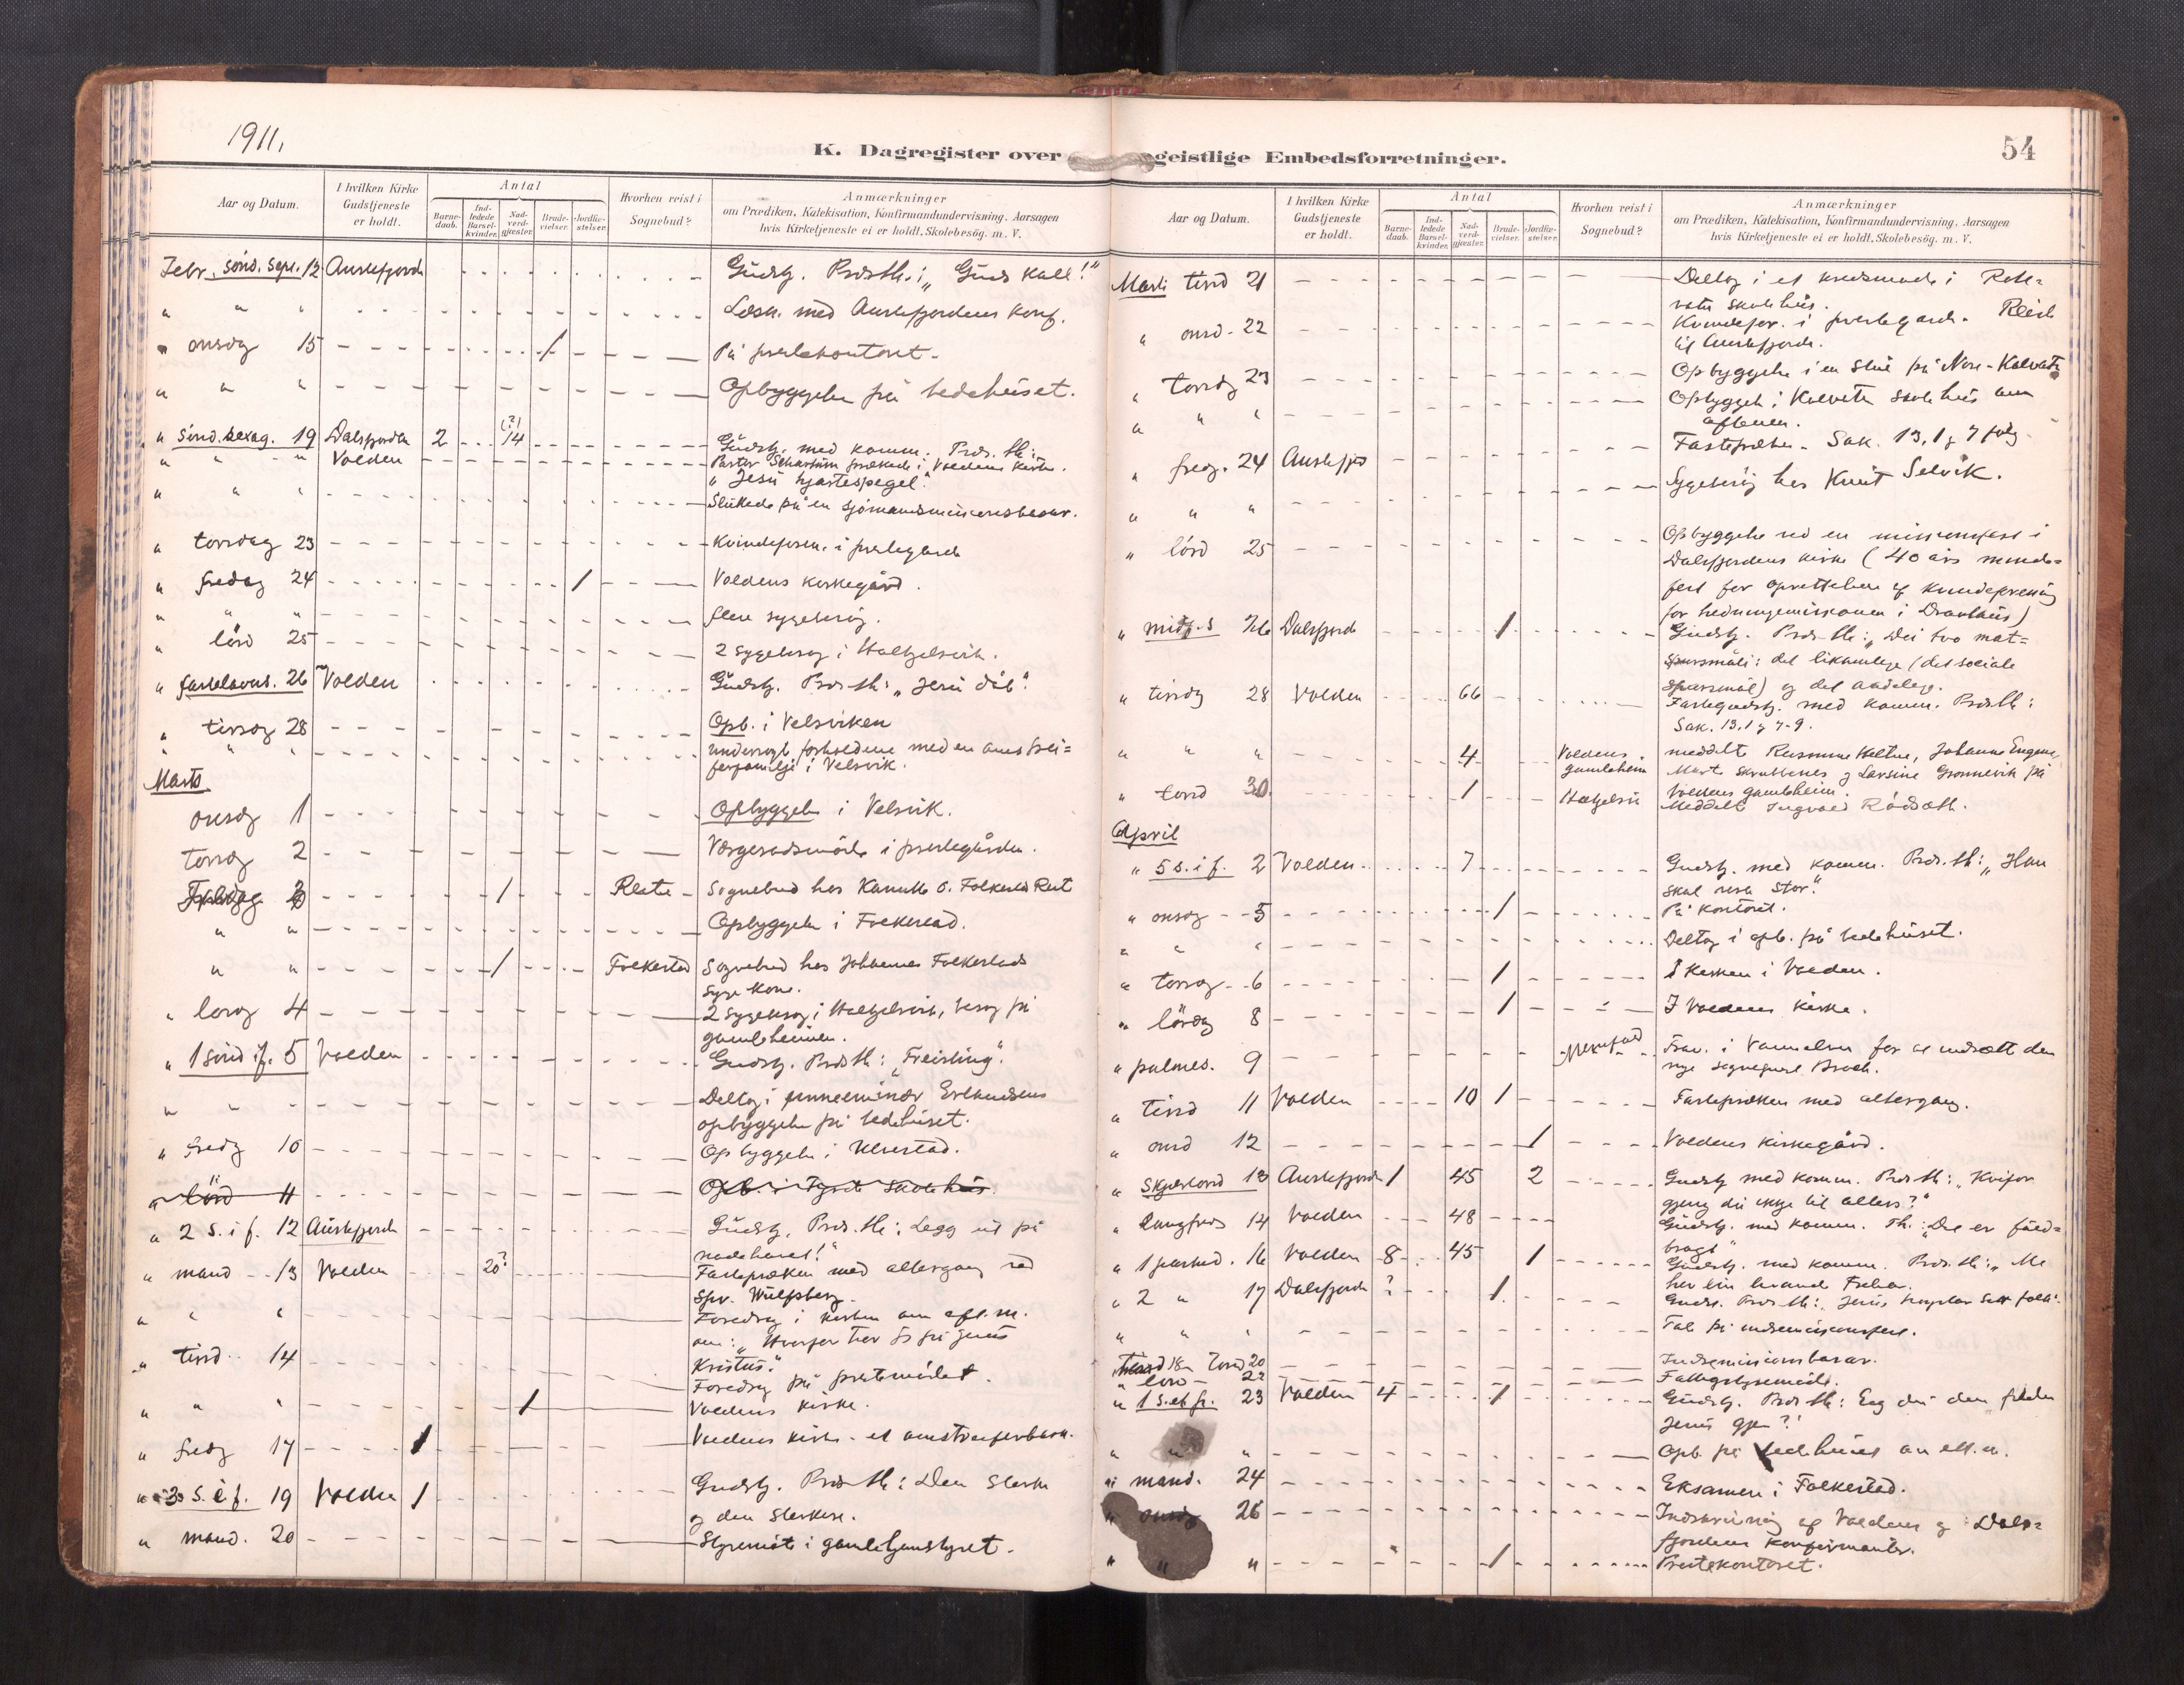 1911.
K. Dagregister over geistlige Embedsforretninger.
54
Aar og Datum.
I hvilken Kirke Gudstjeneste er holdt.
Antal
Barne-daab.
Ind-ledede Barsel-kvinder.
Nad-verd-gjæster.
Brude-vielser.
Jordfæ-stelser.
Hvorhen reist i Sognebud?
Anmærkninger
om Prædiken, Katekisation, Konfirmandundervisning. Aarsagen
hvis Kirketjeneste ei er holdt. Skolebesøg. m. V.
Febr. sønd. sept. 12 Austefjorden Gudstj. Præs. th.: "Guds kall!"
" " " Læsn. med Austefjordens konf.
" onsdag 15 1 På prestekontoret.
" " " Opbyggelse på bedehuset.
" sønd. sexag. 19 Dalsfjorden 2 (?) 14 Gudstj. med komm. Præs. th.:
" " " Volden Pastor Scharhum prækede i Voldens kirke.
"Jesu hjartespegel".
" " " Sluttede på en sjømandsmisionsbasar.
" torsdag 23 Kvindeforen. i prestegarden
" fredag 24 1 Voldens kirkegård.
" " " flere sygebesøg.
" lörd 25 2 sygebesøg i
" fastelavns. 26 Volden Gudstj. Præs. th: "Jesu dåb".
" tirsdag 28 Opb. i Velsviken
" " " undersøgt forholdene med en omstrei=
ferfamilje i Velsvik.
Marts
onsdag 1 Opbyggelse i Velsvik.
torsdag 2 Værgerådsmöde i prestegården.
Fredag 3 1 Sognebud hos
" " Opbyggelse i Folkestad.
" " 1 Folkestad Sognebud hos Johannes Folkestads
syge kone.
" lørdag 4 2 sygebesøg i besøg på
gamleheimen.
" 1 sönd i f. 5 Volden Gudstj. Præs th: "Freisting".
" " " Deltog i Erlandsens
opbyggelse på bedehuset.
" fredag 10 Opbyggelse i Ulvestad.
" lörd 11 Opb. i skolehus.
" 2 s. i f. 12 Austefjorden Gudstj. Præs. th: Legg ut på
" mand 13 Volden 20? Fastepræken med altergang ved
Spr. Wulfsberg.
" " " Foredrag i kirken om eft. m.
om: "Hvorfor tror jeg på Jesus
" tirsd 14 Kristus".
Foredrag på prestemödet.
" " " 1 Voldens kirke.
" fredag 17 1 Voldens kirke - et omstreiferbarn.
" 3 s. i f. 19 Volden 1 Gudstj. Præs th: Den sterke
og den sterkere.
" mand. 20 Styremöte i gamleheimstyret.
Aar og Datum.
I hvilken Kirke Gudstjeneste er holdt.
Antal
Barne-daab.
Ind-ledede Barsel-kvinder.
Nad-verd-gjæster.
Brude-vielser.
Jordfæ-stelser.
Hvorhen reist i Sognebud?
Anmærkninger
om Prædiken, Katekisation, Konfirmandundervisning. Aarsagen
hvis Kirketjeneste ei er holdt. Skolebesøg. m. V.
Marts tirsd 21 Deltog i et kredsmøde i
skolehus.
" onsd. 22 Kvindefor. i prestegarden. Reiste
til Austefjorden.
" torsdag 23 Opbyggelse i en stue på Nore-Kalvatn
" " " Opbyggelse i Kalvatn skolehus om
aftenen.
" fredag. 24 Austefjord Fastepræken. Sak. 13, 1 7 følg.
" " " Sygebesøg hos Knut Selvik.
" lörd 25 Opbyggelse ved en missionsfest i
Dalsfjordens kirke (40 års minde=
fest for oprettelsen af kvindeforening
for hedningemissionen i Dravlaus)
" midf. s 26 Dalsfjorden 1 Gudstj. Præs. th: "Dei tvo mat=
spursmåli: det likamlege (det sociale
spursmål) og det åndelege.
" tirsdag 28 Volden 66 Fastegudstj. med komm. Præs th:
Sak. 13, 1 7-9.
" " " 4 Voldens gamleheim meddelt
og Larsine på
Voldens gamleheim.
" torsd 30. 1 Meddelt Ingvald
April
" 5 s. i f. 2 Volden 7 Gudstj. med komm. Præs. th: "Han
skal vera stor".
" onsdag 5 1 På kontoret.
" " " Deltog i opb. på bedehuset.
" torsdag 6 1 I kirken i Volden.
" lördag 8 1 I Voldens kirke.
" palmes. 9 Præv. i Vannelven for at indsætte den
nye sogneprest Broch.
" tirsd 11 Volden 10 1 Fastepræken med altergang.
" onsd 12 1 Voldens kirkegård.
" Skjærtorsd 13 Austefjorden 1 45 2 Gudstj med komm. Præs th: "Kvifor
gjeng du ikkje til alters?"
" Langfred 14 Volden 48 Gudstj. med komm. Th.: "Det er fuld=
bragt"
" 1 påsked. 16 Volden 8 45 1 Gudstj. med komm. Præs. th: "Me
" 2 " 17 Dalsfjorden ? 1 Gudst. Præs th:
" " " Tale på indremisionsfest.
tirsd 18 - Torsd 20 Indremisionsbasar.
" lörd 22
" 1 s. eft p. 23 Volden 4 1 Gudstj. Præs th:
Jesus gjev?"
" " " Opb. på bedehuset om eft. m.
" mand. 24 Eksamen i Folkestad.
" onsdag 26 Indskrivning af Voldens og Dals=
fjordens konfirmanter.
" " " 1 Prestekontoret.